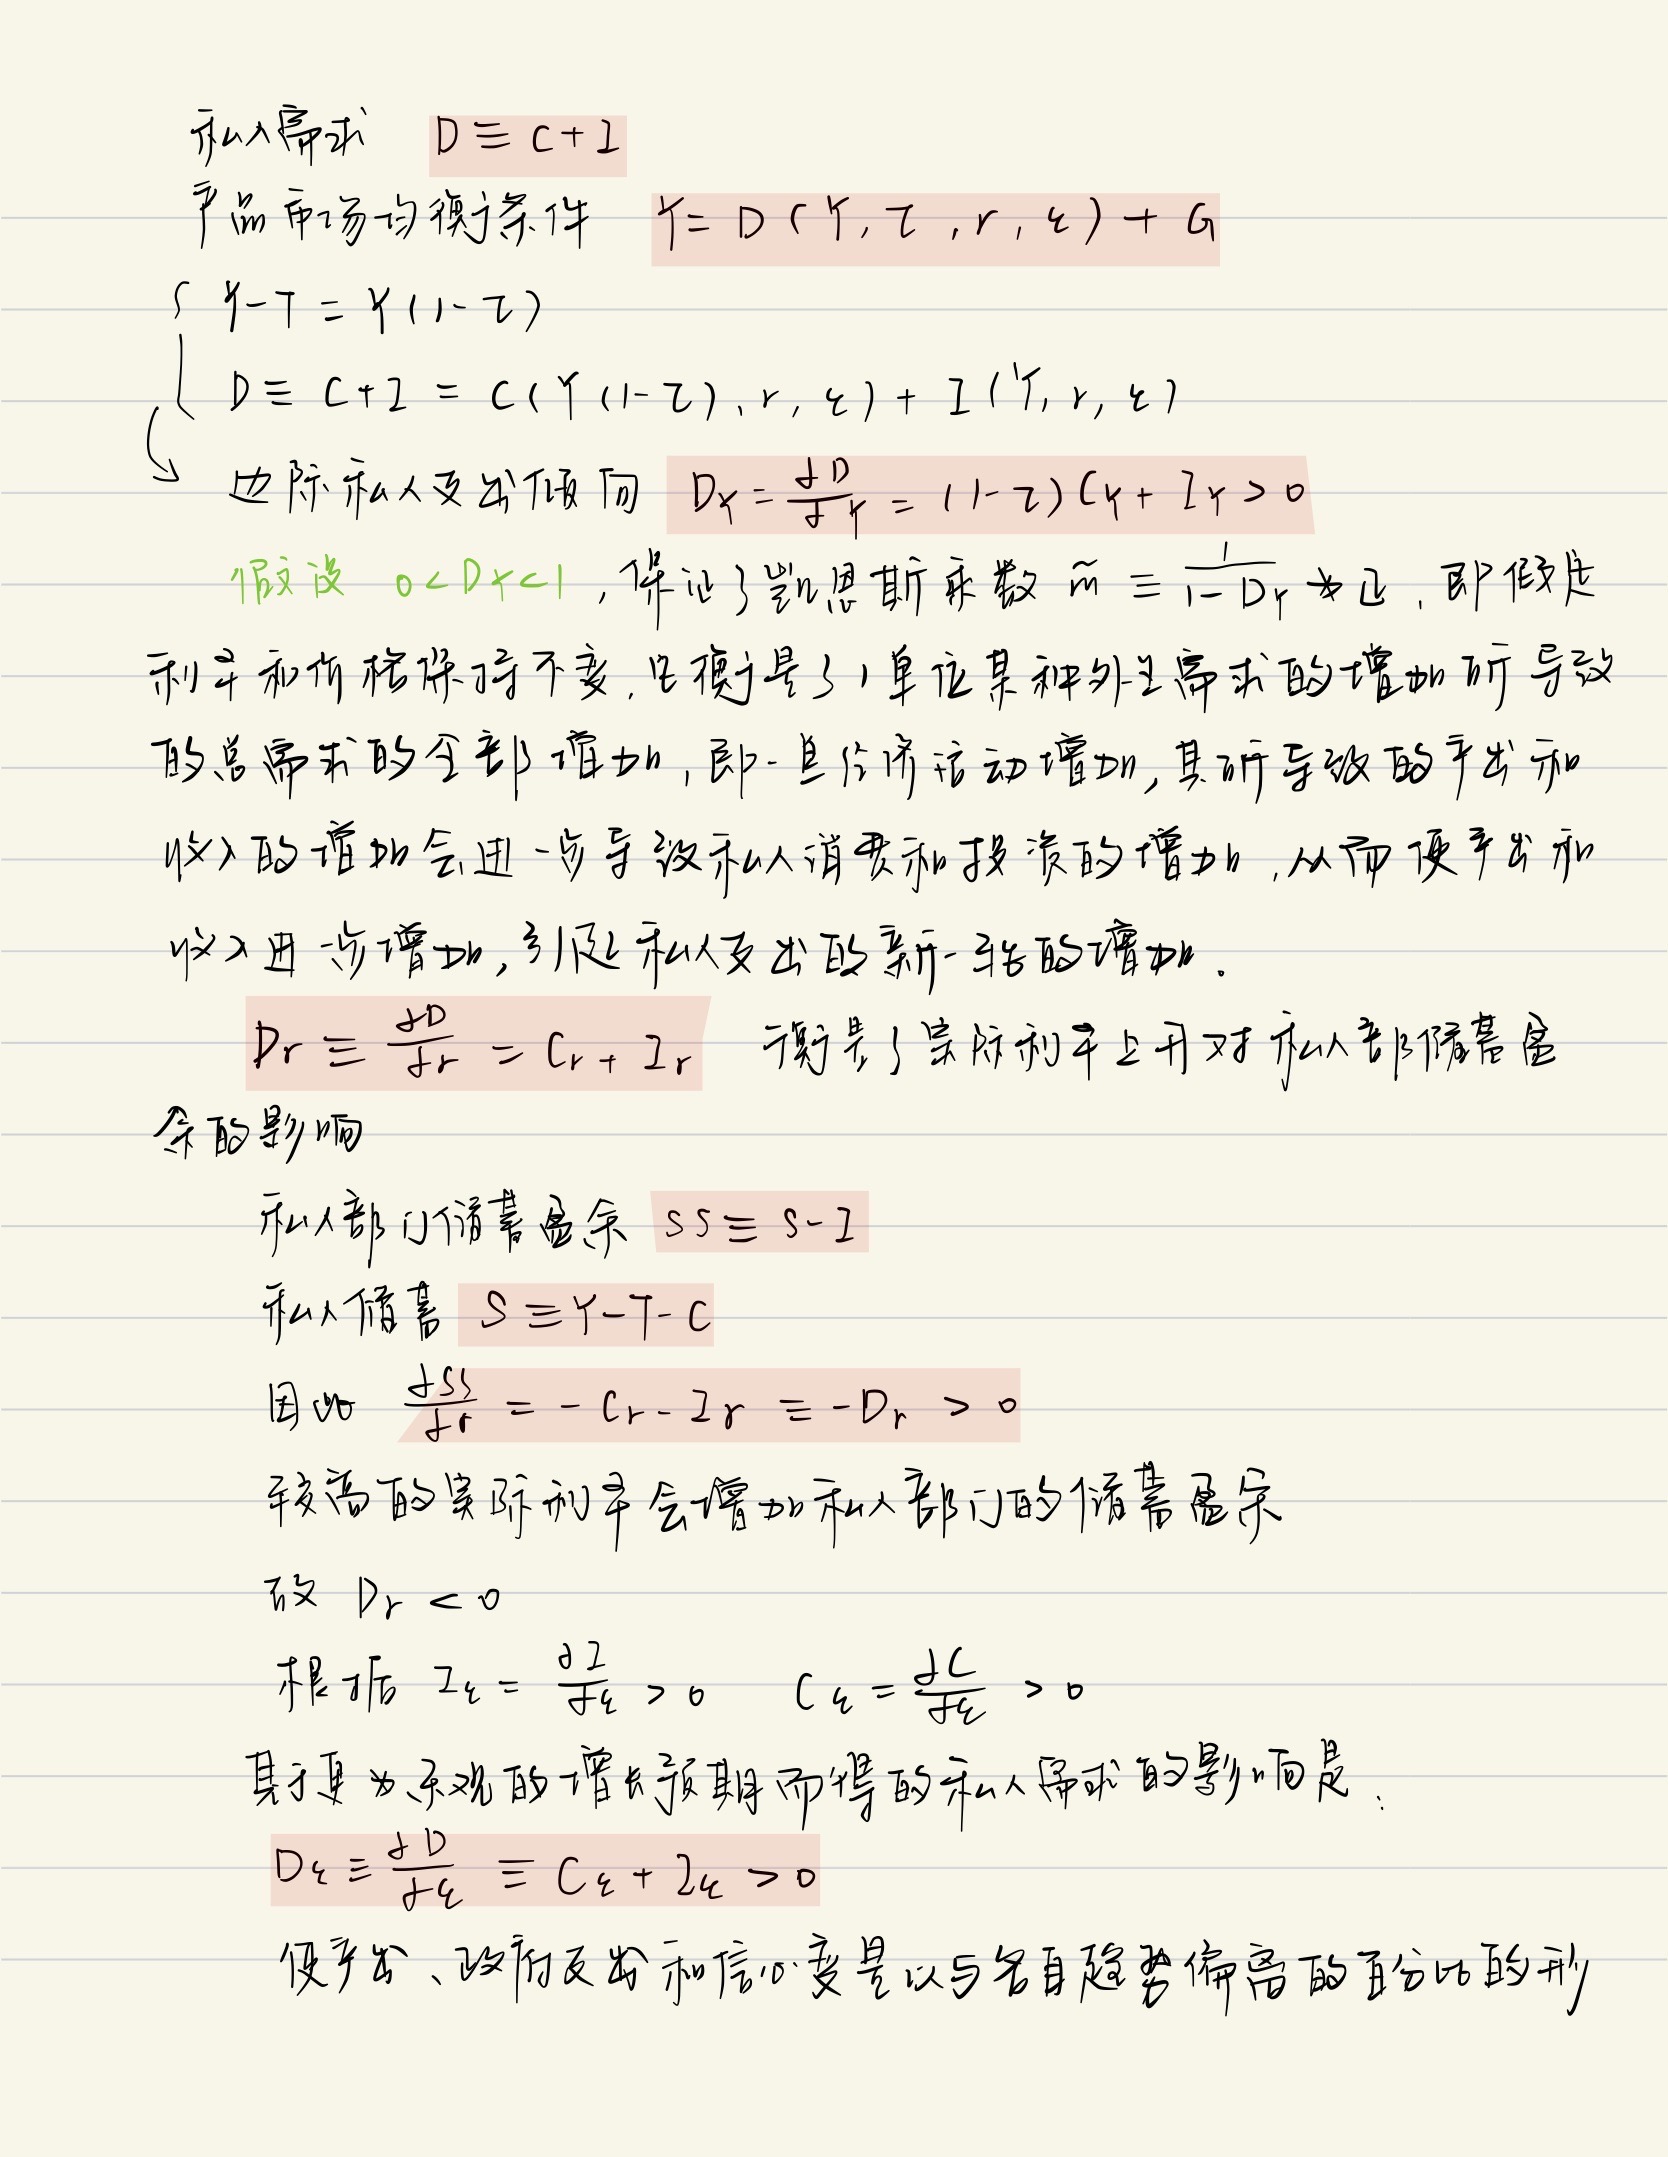 私人需求 D ≡ C + I
产品市场均衡条件 Y = D (Y, τ, r, ε) + G
{ Y - T = Y (1 - τ)
D ≡ C + I = C (Y (1 - τ), r, ε) + I (Y, r, ε)
边际私人支出倾向 D_Y = ∂D/∂Y = (1 - τ) C_Y + I_Y > 0
假设 0 < D_Y < 1, 保证了凯恩斯乘数 m̃ ≡ 1/(1 - D_Y) 为正, 即假定
利率和价格保持不变, 它衡量了1单位某种外生需求的增加所导致
的总需求的全部增加, 即一旦经济活动增加, 其所导致的产出和
收入的增加会进一步导致私人消费和投资的增加, 从而使产出和
收入进一步增加, 引起私人支出的新一轮的增加.
D_r ≡ ∂D/∂r = C_r + I_r 衡量了实际利率上升对私人部门储蓄盈
余的影响
私人部门储蓄盈余 SS ≡ S - I
私人储蓄 S ≡ Y - T - C
因此 ∂SS/∂r = - C_r - I_r ≡ - D_r > 0
较高的实际利率会增加私人部门的储蓄盈余
故 D_r < 0
根据 I_ε = ∂I/∂ε > 0 C_ε = ∂C/∂ε > 0
基于更为乐观的增长预期而得的私人需求的影响是:
D_ε ≡ ∂D/∂ε ≡ C_ε + I_ε > 0
使产出、政府支出和信心变量以与各自趋势偏离的百分比的形